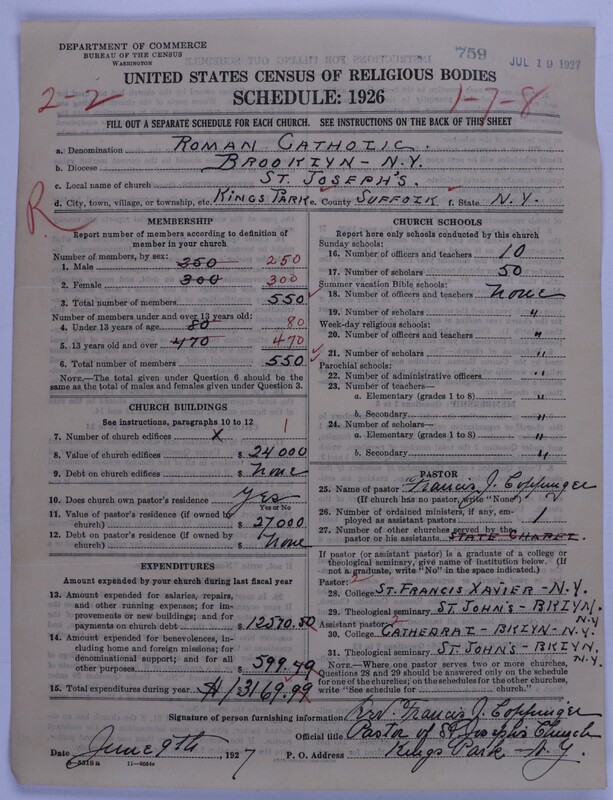 DEPARTMENT OF COMMERCE
BUREAU OF THE CENSUS
WASHINGTON
759
JUL 19 1927
UNITED STATES CENSUS OF RELIGIOUS BODIES
SCHEDULE: 1926
2-2
1-7-8
FILL OUT A SEPARATE SCHEDULE FOR EACH CHURCH. SEE INSTRUCTIONS ON THE BACK OF THIS SHEET
a. Denomination ROMAN CATHOLIC.
b. Diocese BROOKLYN - N.Y.
c. Local name of church ST. JOSEPH'S.
d. City, town, village, or township, etc. KINGS PARK e. County SUFFOLK f. State N.Y.
R
MEMBERSHIP
Report number of members according to definition of
member in your church
Number of members, by sex:
1. Male 250 250
2. Female 300 300
3. Total number of members 550
Number of members under and over 13 years old:
4. Under 13 years of age 80 80
5. 13 years old and over 470 470
6. Total number of members 550
NOTE.—The total given under Question 6 should be the
same as the total of males and females given under Question 3.
CHURCH BUILDINGS
See instructions, paragraphs 10 to 12
7. Number of church edifices X 1
8. Value of church edifices $ 24000
9. Debt on church edifices $ None
10. Does church own pastor's residence Yes
Yes or No
11. Value of pastor's residence (if owned by
church) $ 27000
12. Debt on pastor's residence (if owned by
church) $ None
EXPENDITURES
Amount expended by your church during last fiscal year
13. Amount expended for salaries, repairs,
and other running expenses; for im-
provements or new buildings; and for
payments on church debt $ 12570.50
14. Amount expended for benevolences, in-
cluding home and foreign missions; for
denominational support; and for all
other purposes $ 599.49
15. Total expenditures during year $ 13169.99
CHURCH SCHOOLS
Report here only schools conducted by this church
Sunday schools:
16. Number of officers and teachers 10
17. Number of scholars 50
Summer vacation Bible schools:
18. Number of officers and teachers None
19. Number of scholars "
Week-day religious schools:
20. Number of officers and teachers "
21. Number of scholars "
Parochial schools:
22. Number of administrative officers "
23. Number of teachers—
a. Elementary (grades 1 to 8) "
b. Secondary "
24. Number of scholars—
a. Elementary (grades 1 to 8) "
b. Secondary "
PASTOR
25. Name of pastor Francis J. Coppinger
(If church has no pastor, write "None")
26. Number of ordained ministers, if any, em-
ployed as assistant pastors 1
27. Number of other churches served by the
pastor or his assistants STATE CHAPEL.
If pastor (or assistant pastor) is a graduate of a college or
theological seminary, give name of institution below. (If
not a graduate, write "No" in the space indicated.)
Pastor: 2
28. College ST. FRANCIS XAVIER - N.Y.
29. Theological seminary ST. JOHN'S - BKLYN. N.Y
Assistant pastor: 2
30. College CATHEDRAL - BKLYN - N.Y.
31. Theological seminary ST. JOHN'S - BKLYN. N.Y.
NOTE.—Where one pastor serves two or more churches,
Questions 28 and 29 should be answered only on the schedule
for one of the churches; on the schedules for the other churches,
write "See schedule for church."
Signature of person furnishing information Rev. Francis J. Coppinger
Official title Pastor of St. Joseph's Church
Date June 9th, 1927 P. O. Address Kings Park - N.Y.